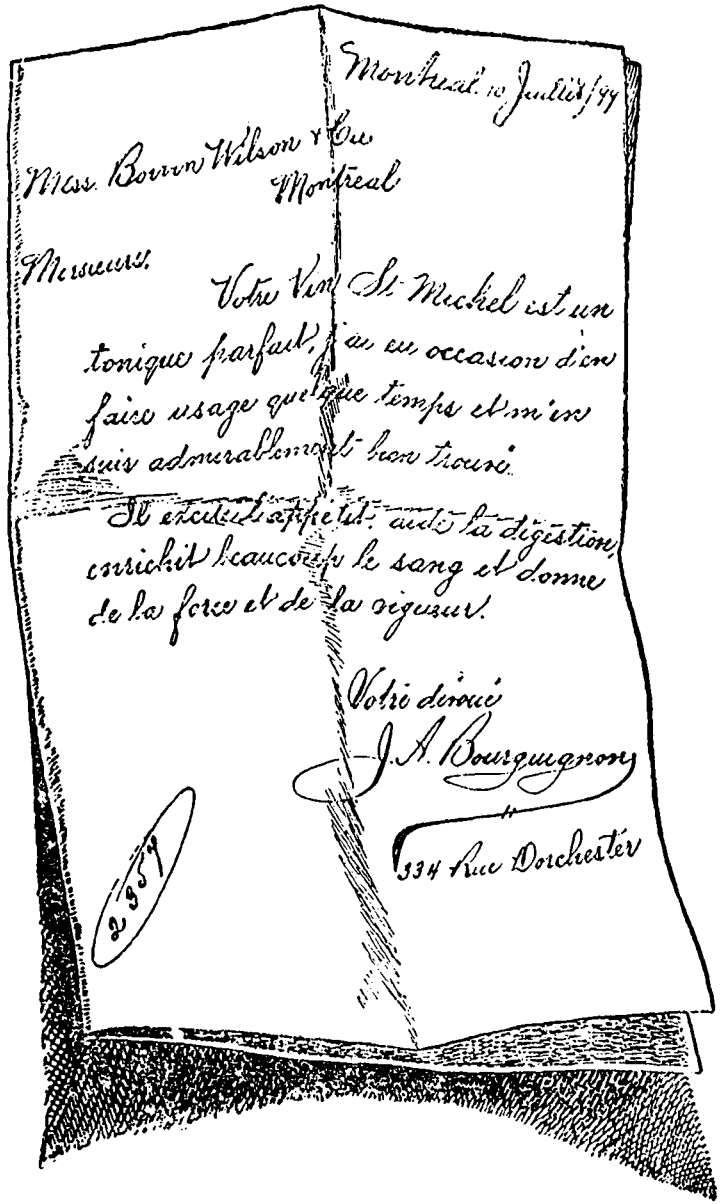 Montreal 10 Juillet/99
Mess. Boivin Wilson & Cie
Montreal
Messieurs,
Votre Vin St Michel est un
tonique parfait, j'ai eu occasion d'en
faire usage quelque temps et m'en
suis admirablement bien trouvé.
Il excite l'appétit, aide la digestion,
enrichit beaucoup le sang et donne
de la force et de la vigueur.
Votre dévoué
J. A. Bourguignon
334 Rue Dorchester
2357